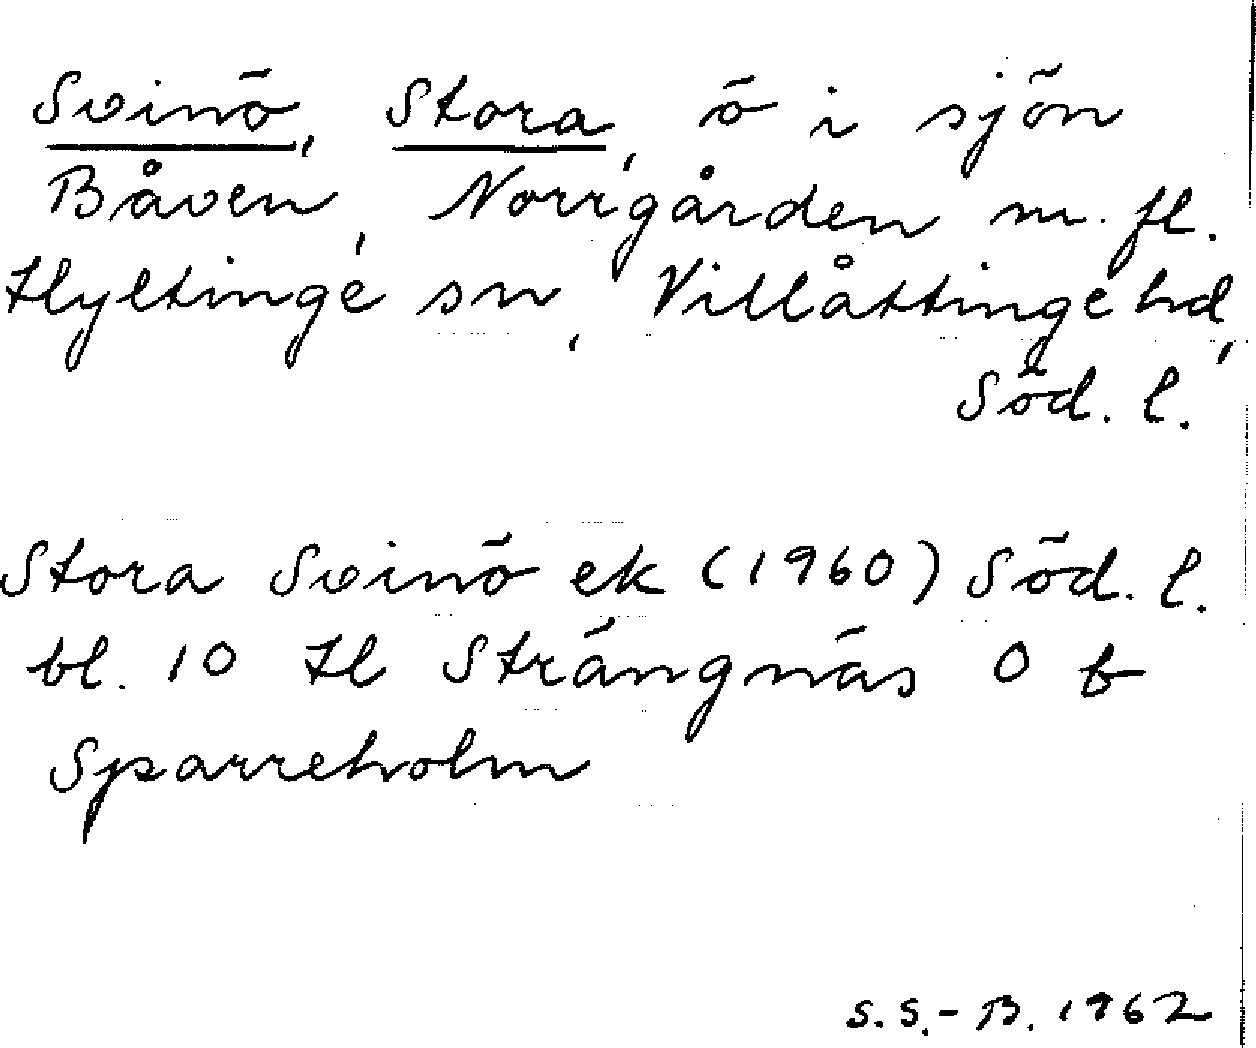 Svinö, Stora, ö i sjön
Båven, Norrgården m. fl.
Hyltinge sn, Villåttinge hd,
Söd. l.
Stora Svinö ek (1960) Söd. l.
bl. 10 Hl Strängnäs O b
Sparreholm
S. S.-B. 1962